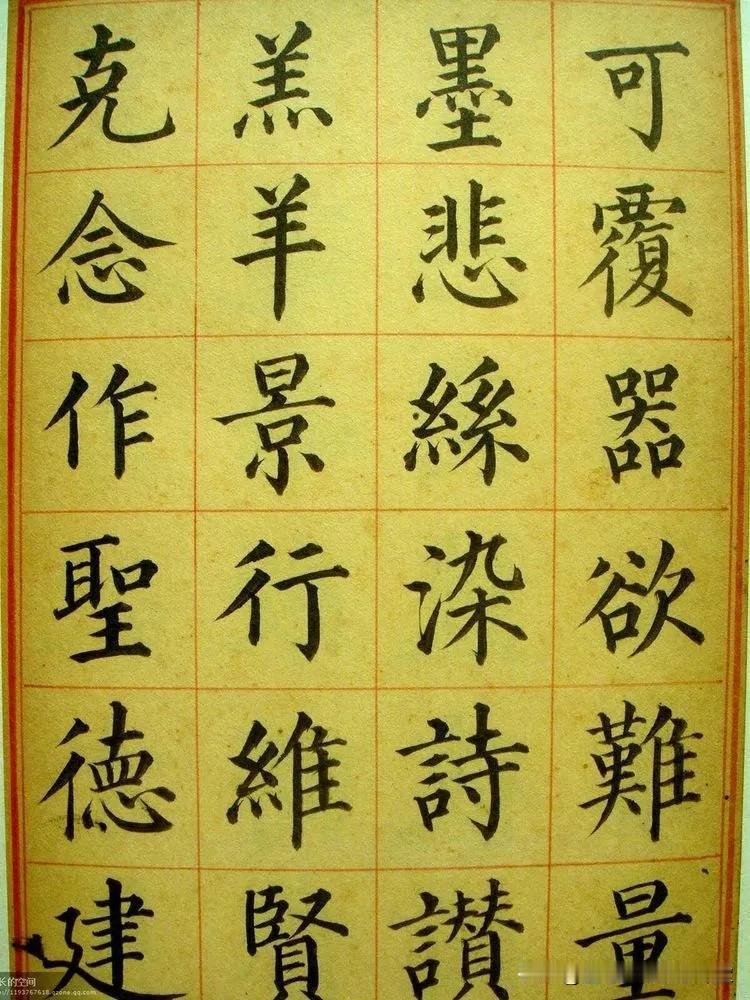 可覆器欲難量
墨悲絲染詩讃
羔羊景行維賢
克念作聖德建
长的空间
//1193767618.qzone.qq.com